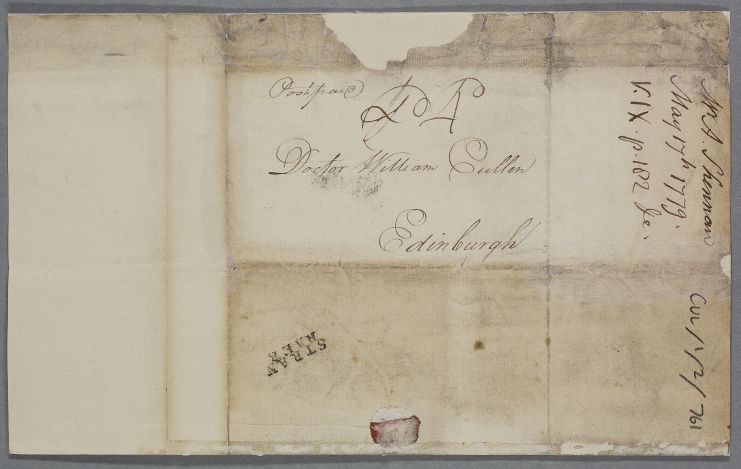 Post paid
P4
Doctor William Cullen
Edinburgh
STRAN
RAER
Mr A. Shennan
May 17th 1779.
V. IX. p. 182 &c.
CUL/1/2/761